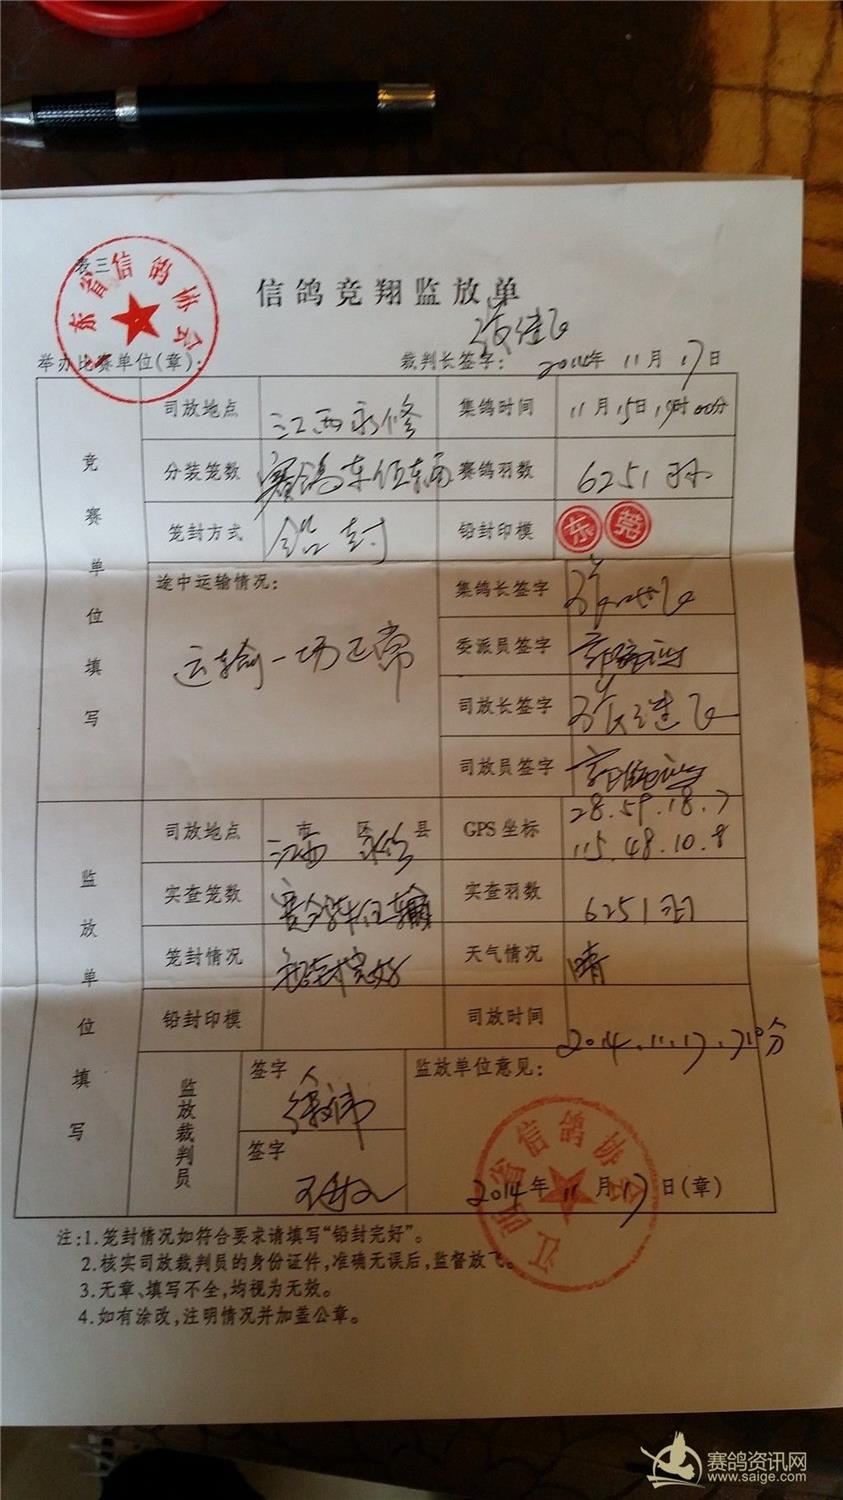 表三
东省信鸽协会
信鸽竞翔监放单
举办比赛单位(章):
裁判长签字: 2014年 11月 17日
竞赛单位填写
司放地点 江西永修 集鸽时间 11月15日19时00分
分装笼数 赛鸽车伍辆 赛鸽羽数 6251羽
笼封方式 铅封 铅封印模 东 莞
途中运输情况: 集鸽长签字
运输一切正常 委派员签字
司放长签字
司放员签字
监放单位填写
司放地点 江西 市 区 永修 县 GPS坐标 28.59.18.7
115.48.10.8
实查笼数 赛鸽车伍辆 实查羽数 6251羽
笼封情况 铅封完好 天气情况 晴
铅封印模 司放时间 2014.11.17.710分
监放裁判员 签字 监放单位意见:
签字
江西省信鸽协会
2014年 11月 17日(章)
注:1.笼封情况如符合要求请填写“铅封完好”。
2.核实司放裁判员的身份证件,准确无误后,监督放飞。
3.无章、填写不全,均视为无效。
4.如有涂改,注明情况并加盖公章。
赛鸽资讯网
www.saige.com